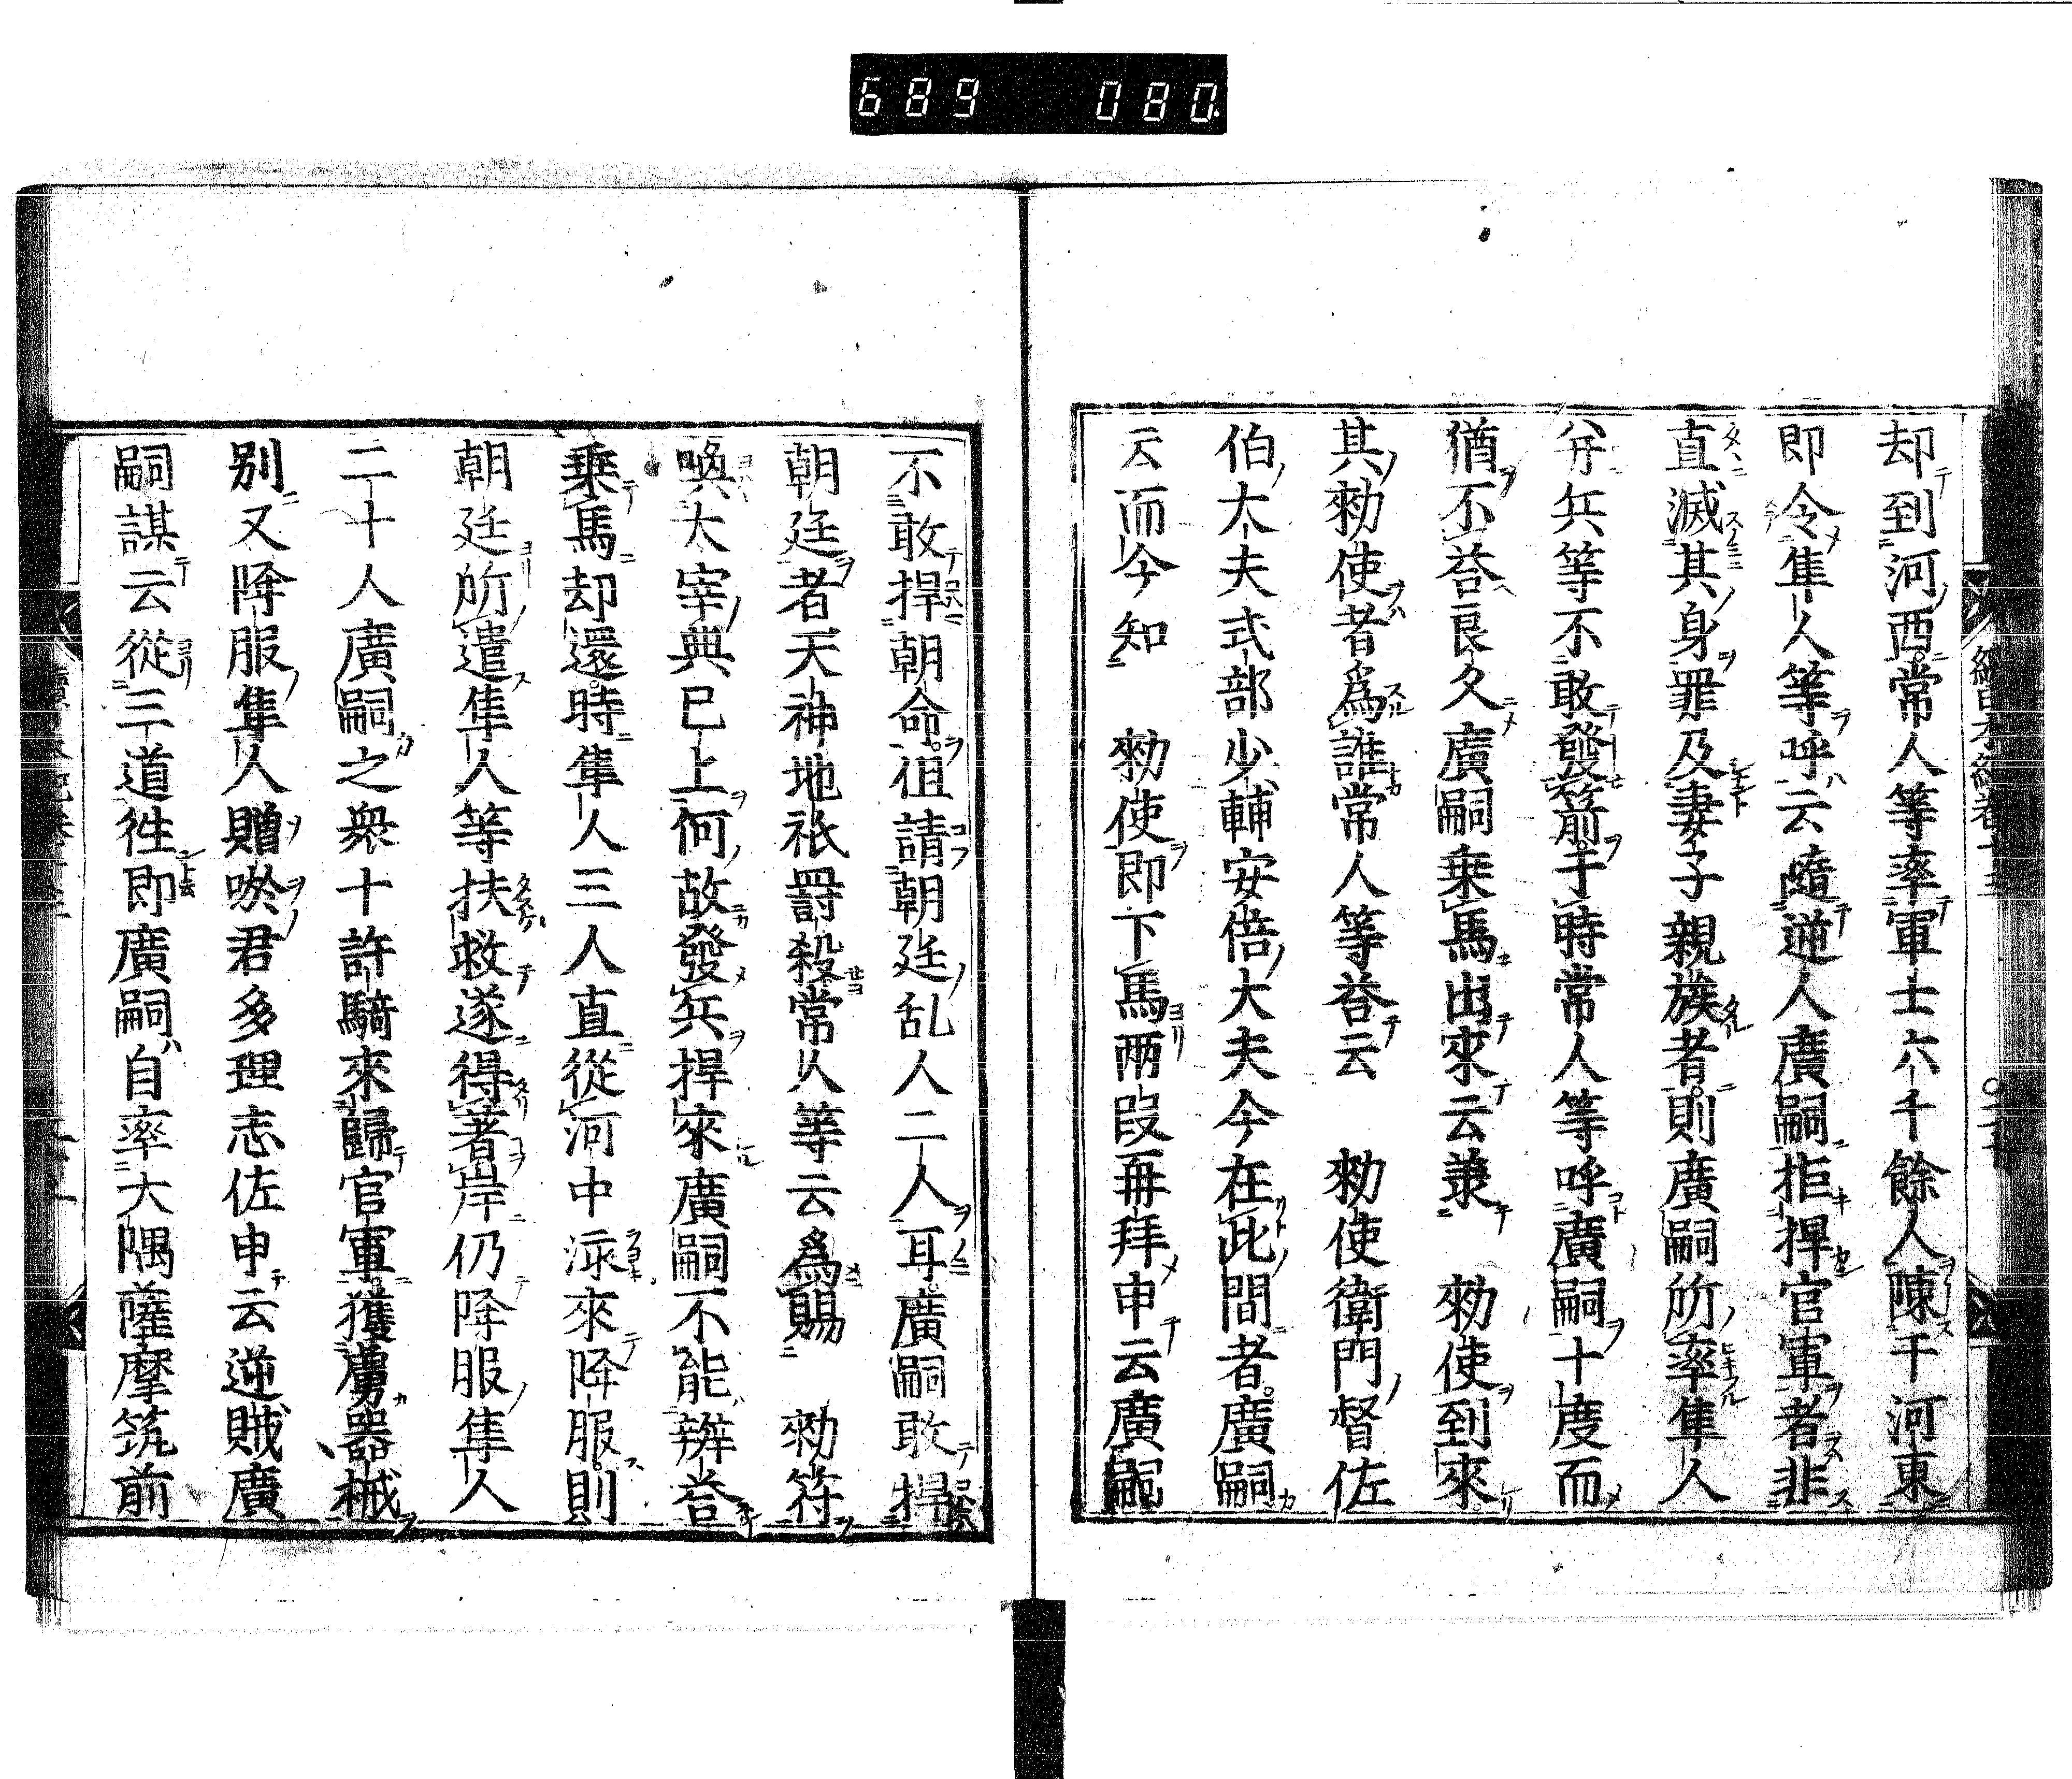 689 080
却到河西常人等率軍士六千餘人陳于河東
即令隼人等呼云隨逆人廣嗣拒捍官軍者非
直滅其身罪及妻子親族者則廣嗣所率隼人
并兵等不敢發箭于時常人等呼廣嗣十度而
猶不荅良久廣嗣乗馬出來云兼 勑使到來
其勑使者爲誰常人等荅云 勑使衛門督佐
伯大夫式部少輔安倍大夫今在此間者廣嗣
云而今知 勑使即下馬兩段再拜申云廣嗣
不敢捍朝命但請朝廷乱人二人耳廣嗣敢捍
朝廷者天神地祇罸殺常人等云爲賜 勑符
喚大宰典已上何故發兵捍來廣嗣不能辨荅
乗馬却還時隼人三人直從河中泳來降服則
朝廷所遣隼人等扶救遂得著岸仍降服隼人
二十人廣嗣之衆十許騎來歸官軍獲虜器械
別又降服隼人贈唹君多理志佐申云逆賊廣
嗣謀云從三道徃即廣嗣自率大隅薩摩筑前